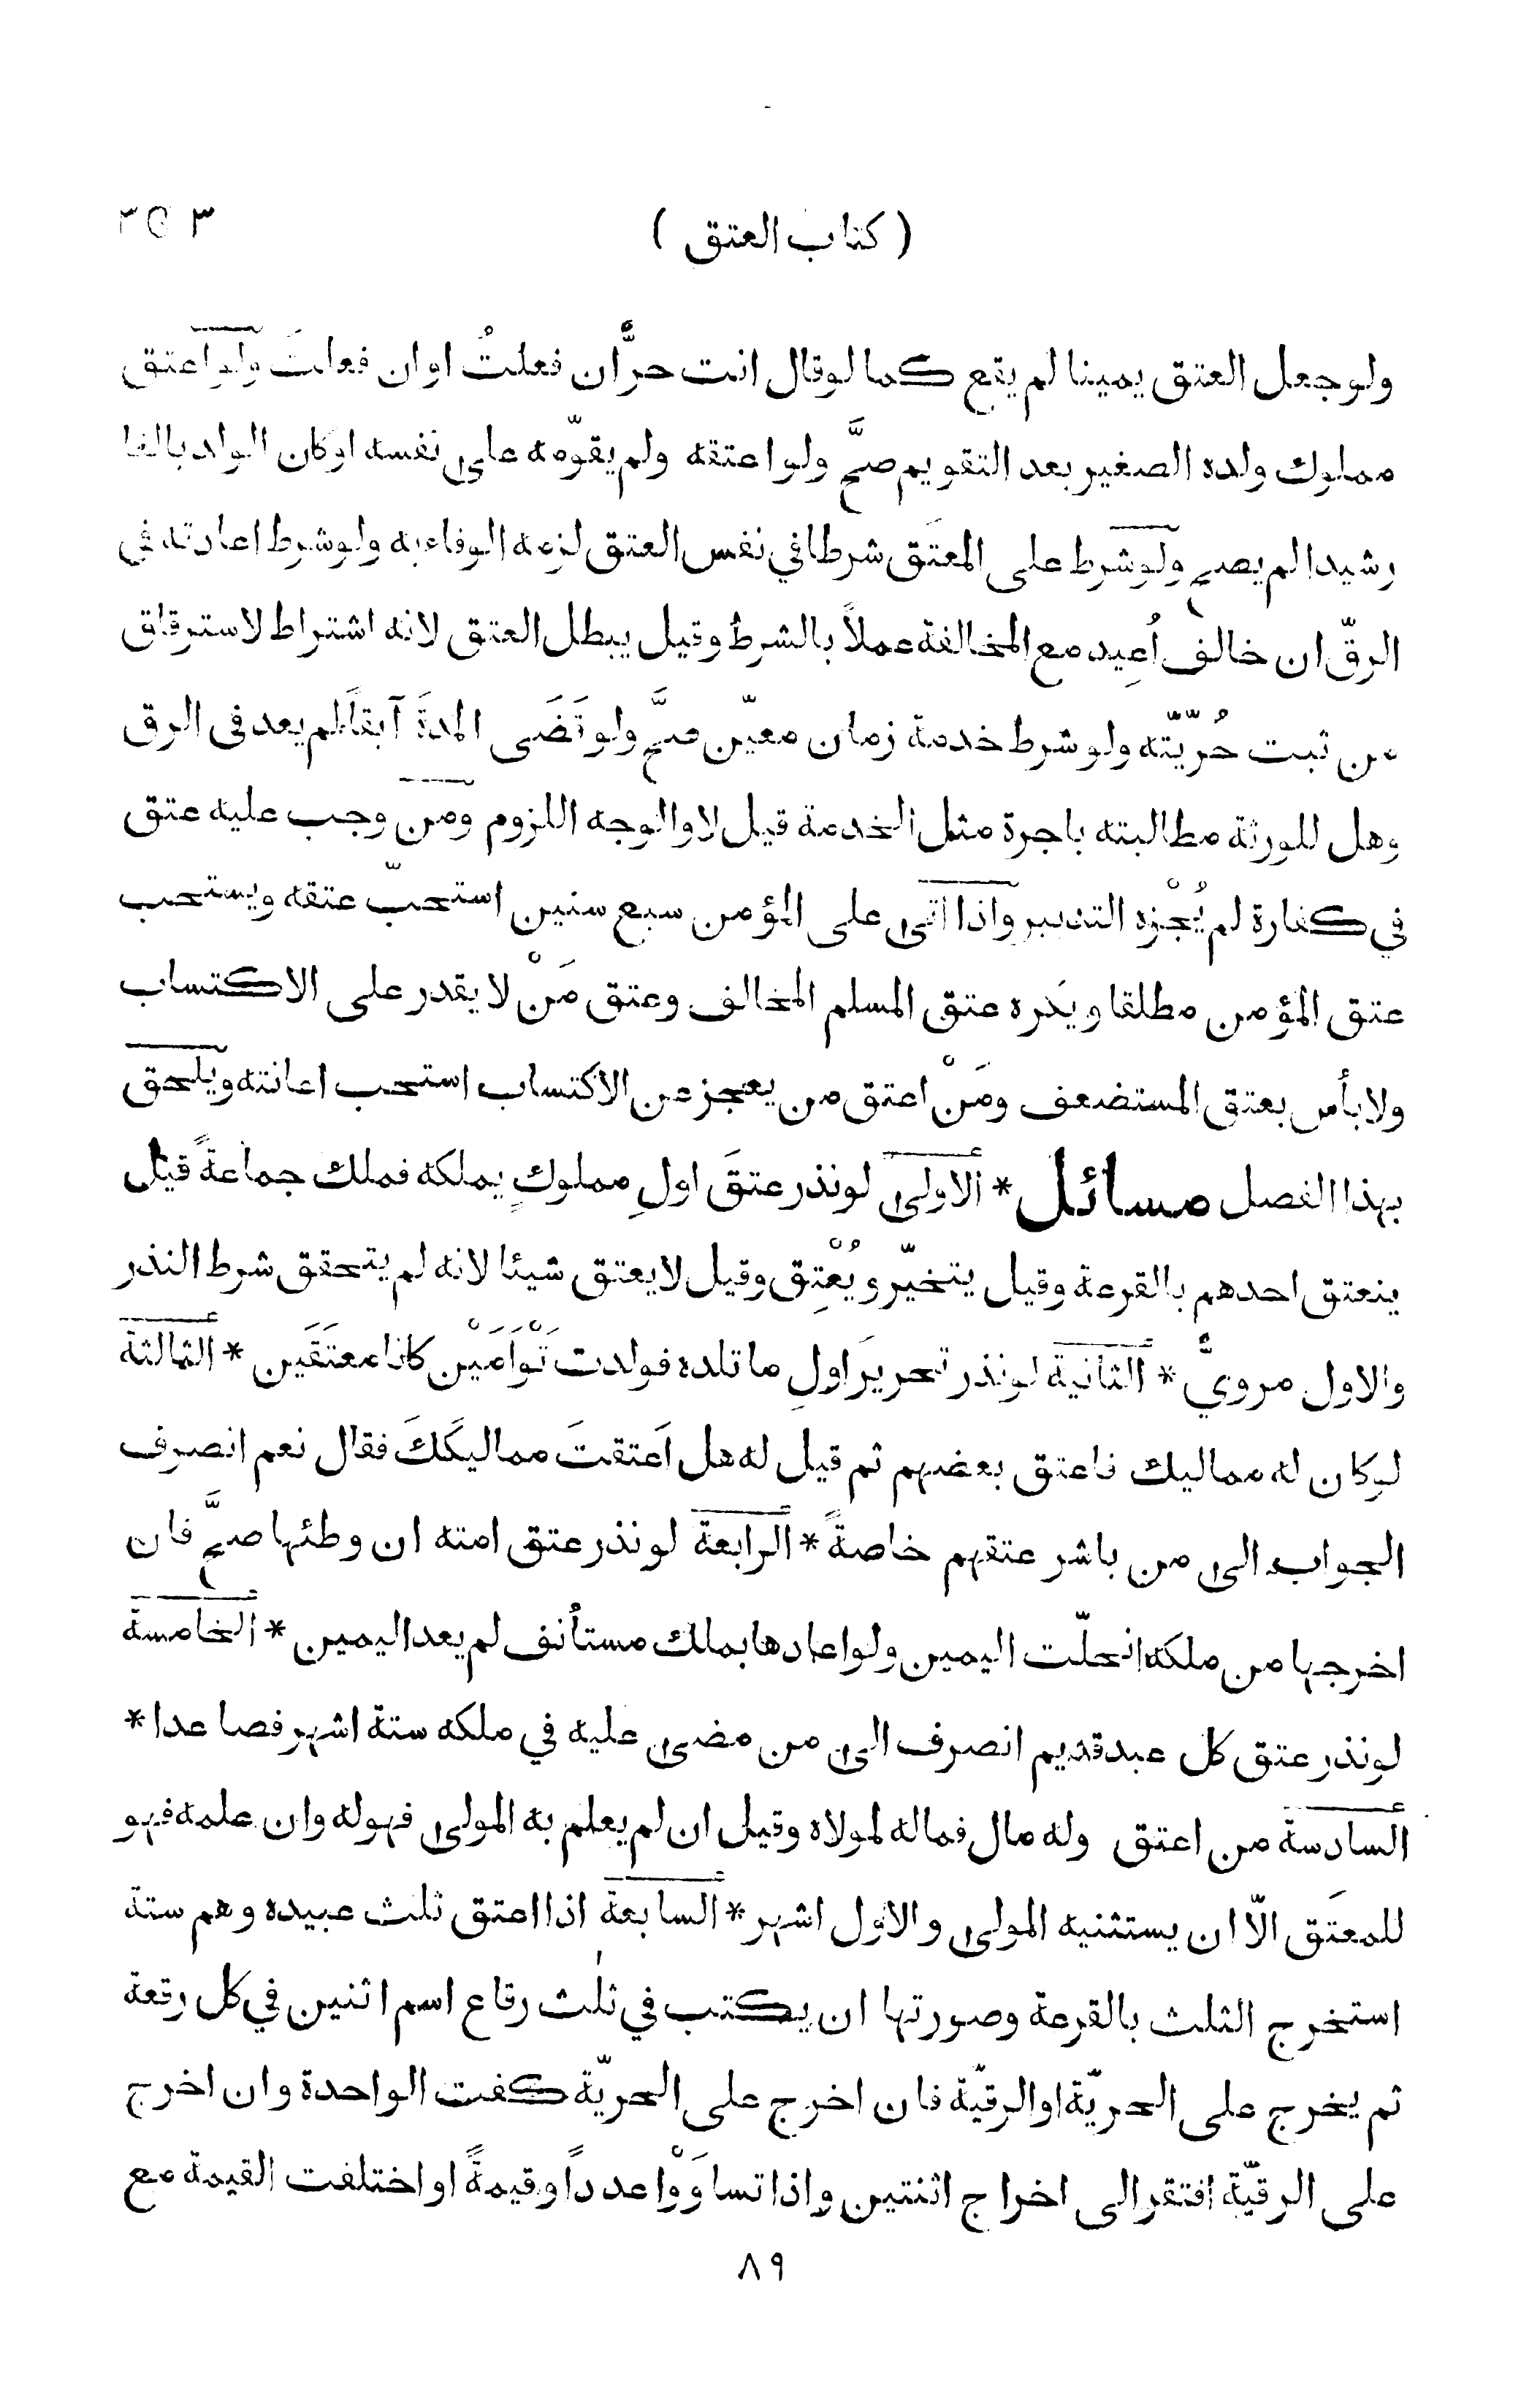 ( كتاب العتق ) ٣٥٣
ولو جعل العتق يمينا لم يقع كما لو قال انت حرٌّ ان فعلتُ او ان فعلتَ ولو اعتق
مملوك ولده الصغير بعد التقويم صحَّ ولو اعتقه ولم يقوّمه على نفسه او كان الولد بالغا
رشيدا لم يصح ولو شرط على المعتَق شرطا في نفس العتق لزمه الوفاء به ولو شرط اعادته في
الرقّ ان خالف اُعِيد مع المخالفة عملاً بالشرط وقيل يبطل العتق لانه اشتراط لاسترقاق
من ثبت حُرّيّته ولو شرط خدمة زمان معيّن صحَّ ولو قَضَى المدةَ آبقاً لم يعد في الرق
وهل للورثة مطالبته باجرة مثل الخدمة قيل لا والوجه اللزوم ومن وجب عليه عتق
في كفارة لم يُجْزِه التدبير واذا اتى على المؤمن سبع سنين استحبّ عتقه ويستحب
عتق المؤمن مطلقا ويَكره عتق المسلم المخالف وعتق مَنْ لا يقدر على الاكتساب
ولا بأس بعتق المستضعف ومَنْ اعتق من يعجز عن الاكتساب استحب اعانته ويلحق
بهذا الفصل مسائل * الاولى لو نذر عتقَ اولِ مملوكٍ يملكه فملك جماعةً قيل
ينعتق احدهم بالقرعة وقيل يتخيّر ويُعْتِق وقيل لا يعتق شيئا لانه لم يتحقق شرط النذر
والاول مرويٌّ * الثانية لو نذر تحريرَ اولِ ما تلده فولدت تَوْاَمَيْن كانا معتَقَين * الثالثة
لو كان له مماليك فاعتق بعضهم ثم قيل له هل اَعتقتَ مماليكَكَ فقال نعم انصرف
الجواب الى من باشر عتقهم خاصةً * الرابعة لو نذر عتق امته ان وطئها صحَّ فان
اخرجها من ملكه انحلّت اليمين ولو اعادها بملك مستأنف لم يعد اليمين * الخامسة
لو نذر عتق كل عبد قديم انصرف الى من مضى عليه في ملكه ستة اشهر فصاعدا *
السادسة من اعتق وله مال فماله لمولاه وقيل ان لم يعلم به المولى فهو له وان علمه فهو
للمعتَق الاّ ان يستثنيه المولى والاول اشهر * السابعة اذا اعتق ثلث عبيده وهم ستة
استخرج الثلث بالقرعة وصورتها ان يكتب في ثلٰث رقاع اسم اثنين في كل رقعة
ثم يخرج على الحريّة او الرقيّة فان اخرج على الحريّة كفت الواحدة وان اخرج
على الرقيّة افتقر الى اخراج اثنتين واذا تساوَوْا عدداً وقيمةً او اختلفت القيمة مع
٨٩